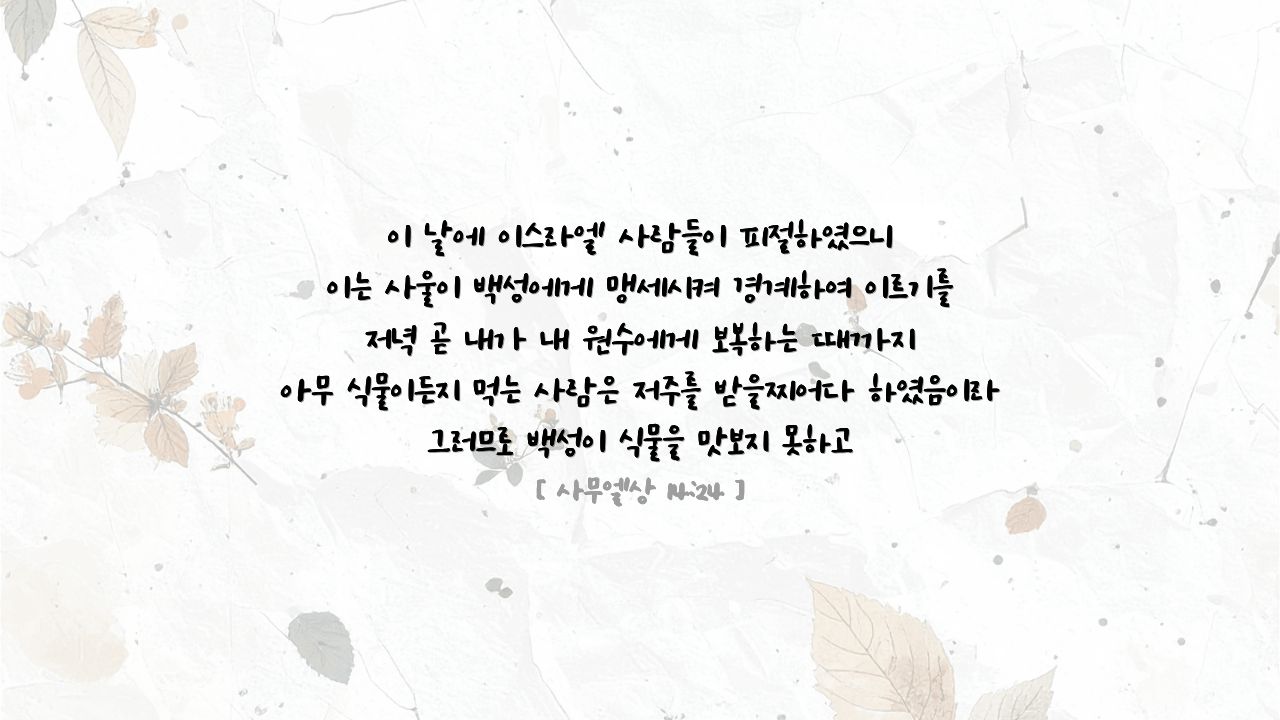 이 날에 이스라엘 사람들이 피절하였으니
이는 사울이 백성에게 맹세시켜 경계하여 이르기를
저녁 곧 내가 내 원수에게 보복하는 때까지
아무 식물이든지 먹는 사람은 저주를 받을찌어다 하였음이라
그러므로 백성이 식물을 맛보지 못하고
[ 사무엘상 14:24 ]